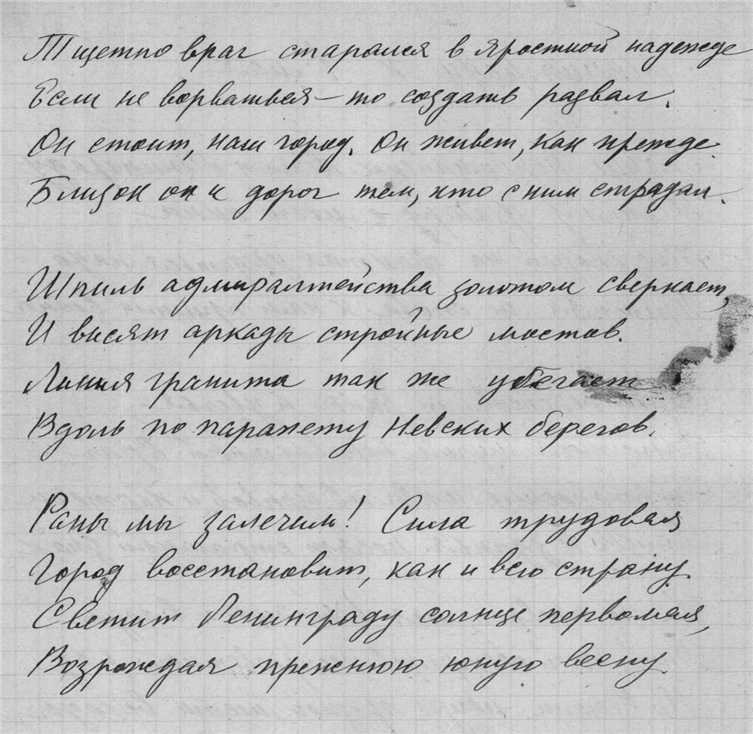 Тщетно враг старался в яростной надежде
Если не ворваться – то создать развал.
Он стоит, наш город. Он живет, как прежде.
Близок он и дорог тем, кто с ним страдал.
Шпиль адмиралтейства золотом сверкает,
И висят аркады стройные мостов.
Линия гранита так же убегает
Вдоль по парапету Невских берегов.
Раны мы залечим! Сила трудовая
Город восстановит, как и всю страну.
Светит Ленинграду солнце первомая,
Возрождая прежнюю юную весну.